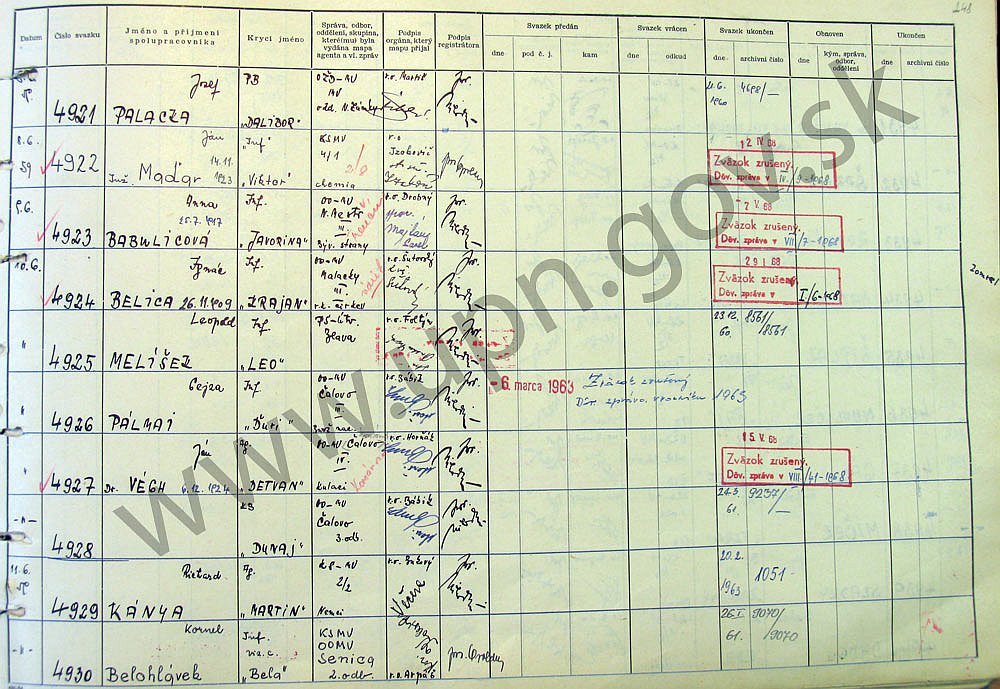 148
Datum
Číslo svazku
Jméno a příjmení
spolupracovníka
Krycí jméno
Správa, odbor,
oddělení, skupina,
které(mu) byla
vydána mapa
agenta a vl. zpráv
Podpis
orgána, který
mapu přijal
Podpis
registrátora
Svazek předán
dne
pod č. j.
kam
Svazek vrácen
dne
odkud
Svazek ukončen
dne
archivní číslo
Obnoven
dne
kým, správa,
odbor,
oddělení
Ukončen
dne
archivní číslo
4921
Jozef
PALACZA
PB
„DALIBOR"
1960
4698/—
8.6.
59
4922
Ján
14.11.
1923
Inž. Maďar
„Inf"
„Viktor"
KSMV
4/1
chemia
r.o
12 IV 68
Zväzok zrušený.
Dôv. zpráva v IV./9-1968
9.6.
4923
Anna
25.7.1917
BABULICOVÁ
Inf.
„JAVORINA"
OO-MV
III.
býv. strany
r.o. Drobný
2 V. 68
Zväzok zrušený.
Dôv. zpráva v VII/7-1968
10.6.
4924
Ignác
BELICA 26.11.1909
Inf.
„KRAJAN"
OO-MV
Malacky
III.
r.k. cirkev
r.o. Sutorský
29 I 68
Zväzok zrušený
Dôv. zpráva v I/6-1968
Zomrel
"
4925
Leopold
MELÍŠEK
Inf
„LEO"
r.o. Foltýn
23.12.
60.
8561/
8561
"
4926
Gejza
PÁLMAI
Inf
„Ďuri"
OO-MV
Čalovo
III
r.o. Bábik
- 6. marca 1963
Zväzok zrušený
1963
"
4927
Ján
Dr. VÉGH 6.12.1924
Ag.
„DETVAN"
OO-MV Čalovo
IV.
kulaci
Komárno
r.o. Hornák
15. V. 68
Zväzok zrušený.
Dôv. zpráva v VIII/41-1968
-"-
4928
KB
„DUNAJ"
OO-MV
Čalovo
3.odb.
r.o. Bábik
24.3.
61.
9237/—
11.6.
4929
Richard
KÁNYA
Ag.
„MARTIN"
2/2
Nemci
20.2.
1963
1051-
-"-
4930
Kornel
Belohlávek
Inf.
„Bela"
KSMV
OOMV
Senica
2.odb.
r.o. Arpáš
26.I
61.
9070/
9070
www.upn.gov.sk